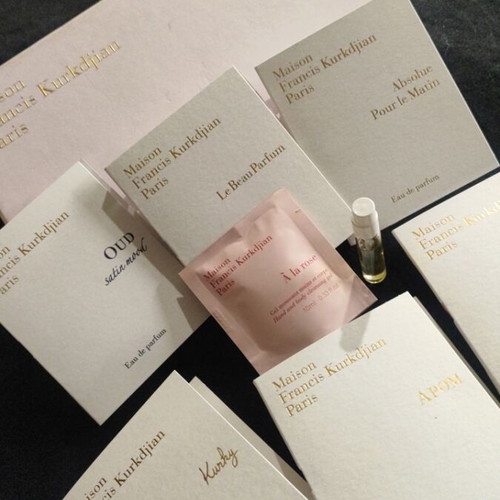 Maison
Francis Kurkdjian
Paris
Maison
Francis Kurkdjian
Paris
Le Beau Parfum
Maison
Francis Kurkdjian
Paris
Absolue
Pour le Matin
Eau de parfum
Maison
Francis Kurkdjian
Paris
OUD
satin mood
Eau de parfum
Maison
Francis Kurkdjian
Paris
À la rose
Hand and body cleansing gel
Maison
Francis Kurkdjian
Paris
Maison
Francis Kurkdjian
Paris
APOM
Maison
Francis Kurkdjian
Kurky